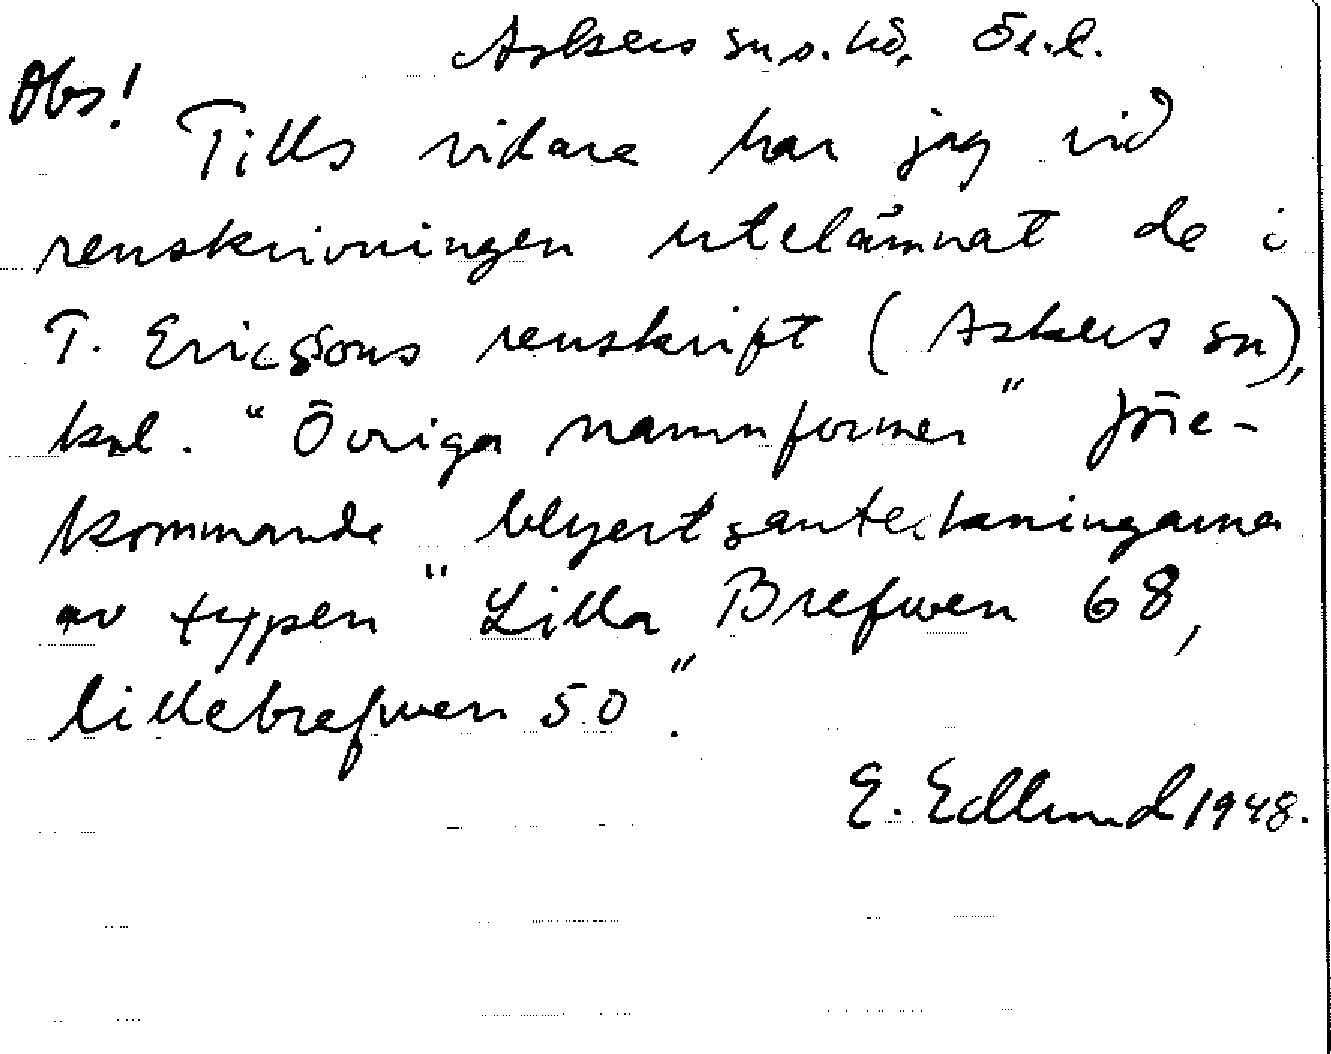 Askers sn o. hd, Ör. l.
Obs!
Tills vidare har jag vid
renskrivningen utelämnat de i
T. Ericssons renskrift (Askers sn),
kol. "Övriga namnformer" före-
kommande blyertsanteckningarna
av typen "Lilla Brefwen 68,
lillebrefwen 50".
E. Edlund 1948.